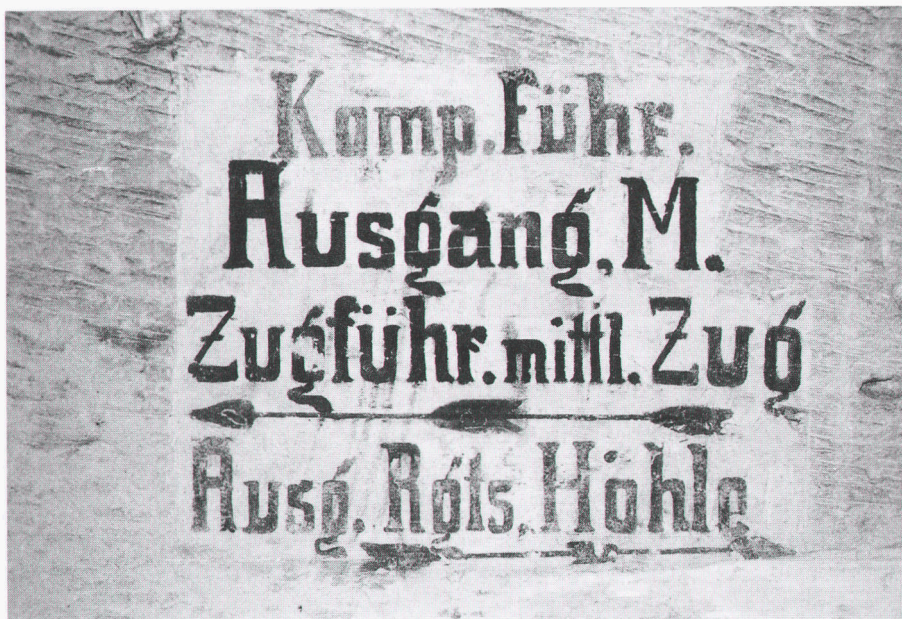 Komp.führ.
Ausgang.M.
Zugführ.mittl.Zug
Ausg.Rgts.Höhle